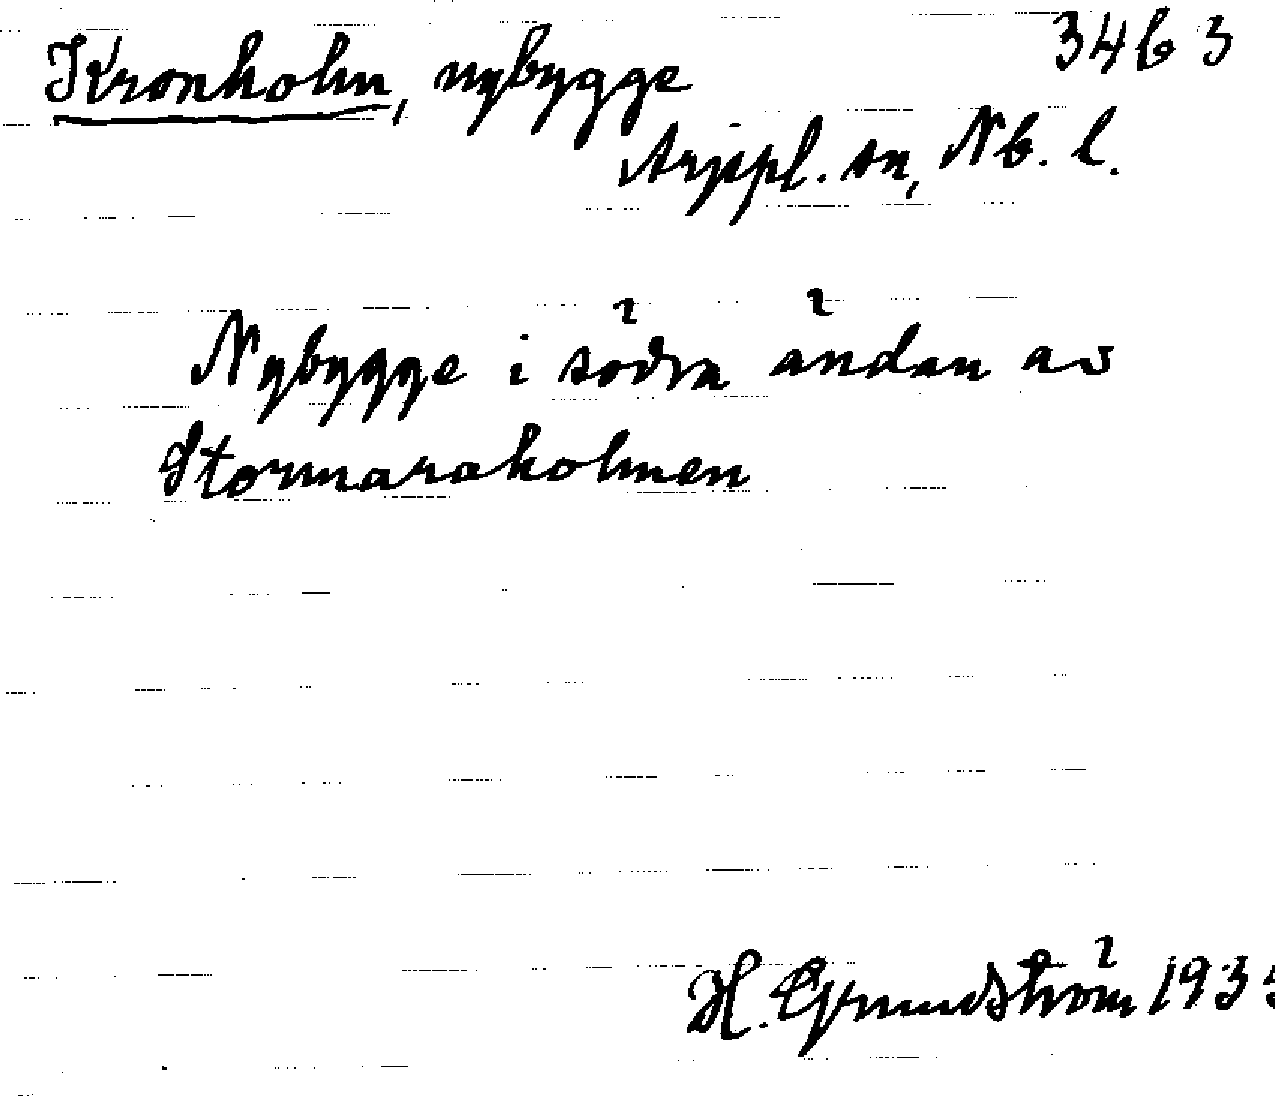 Kronholm, nybygge 3463
Arjepl. sn, Nb. l.
Nybygge i södra ändan av
Stormaraholmen
H. Grundström 193